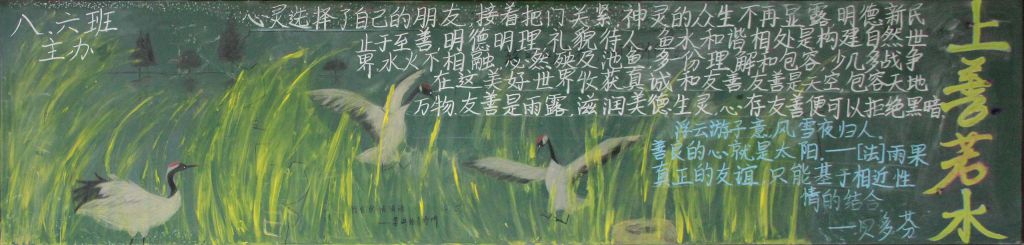 上善若水
八.六班
主办
心灵选择了自己的朋友，接着把门关紧，神灵的众生不再显露。明德新民
止于至善，明德明理，礼貌待人。鱼水和谐相处是构建自然世
界，水火不相融，必然殃及池鱼，多一份理解和包容，少几多战争
在这美好世界收获真诚和友善，友善是天空，包容天地
万物，友善是雨露，滋润美德生灵，心存友善便可以拒绝黑暗
浮云游子意，风雪夜归人。
善良的心就是太阳。——[法]雨果
真正的友谊，只能基于相近性
情的结合
——贝多芬